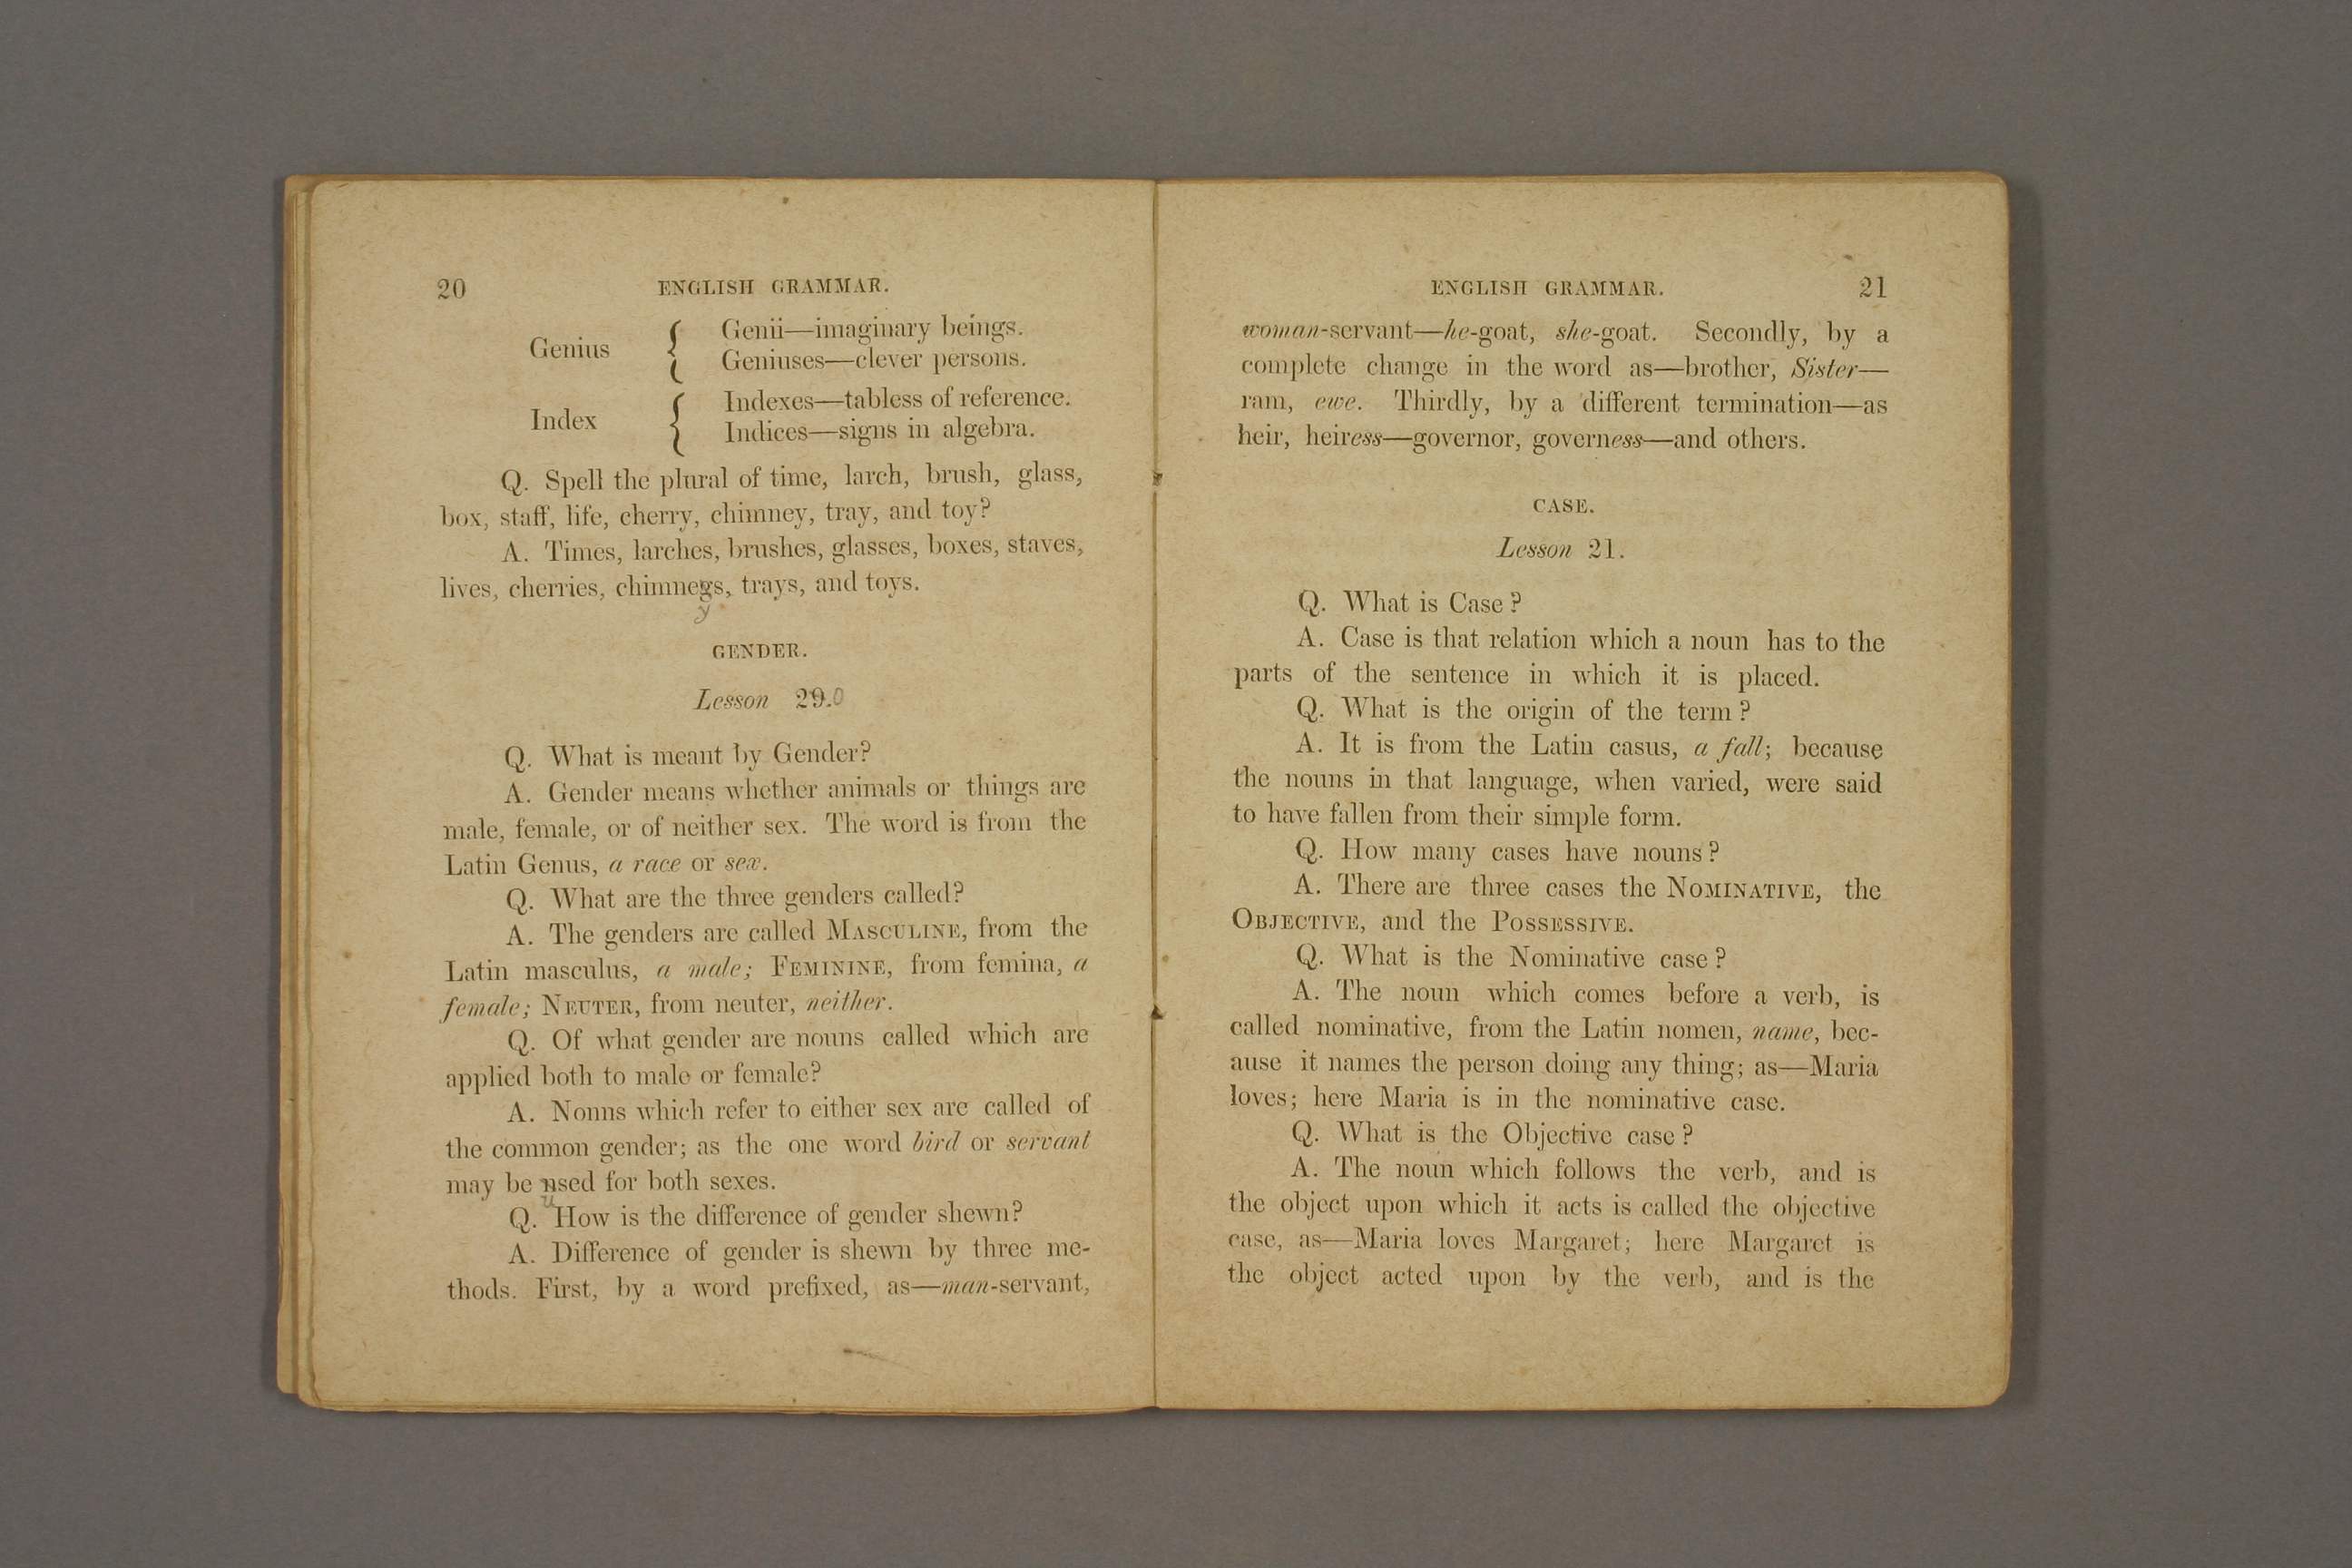 20 ENGLISH GRAMMAR.
Genius { Genii—imaginary beings.
Geniuses—clever persons.
Index { Indexes—tabless of reference.
Indices—signs in algebra.
Q. Spell the plural of time, larch, brush, glass,
box, staff, life, cherry, chimney, tray, and toy?
A. Times, larches, brushes, glasses, boxes, staves,
lives, cherries, chimnegs, trays, and toys.
y
GENDER.
Lesson 29.0
Q. What is meant by Gender?
A. Gender means whether animals or things are
male, female, or of neither sex. The word is from the
Latin Genus, a race or sex.
Q. What are the three genders called?
A. The genders are called MASCULINE, from the
Latin masculus, a male; FEMININE, from femina, a
female; NEUTER, from neuter, neither.
Q. Of what gender are nouns called which are
applied both to male or female?
A. Nonns which refer to either sex are called of
the common gender; as the one word bird or servant
may be nsed for both sexes.
u
Q. How is the difference of gender shewn?
A. Difference of gender is shewn by three me-
thods. First, by a word prefixed, as—man-servant,
ENGLISH GRAMMAR. 21
woman-servant—he-goat, she-goat. Secondly, by a
complete change in the word as—brother, Sister—
ram, ewe. Thirdly, by a different termination—as
heir, heiress—governor, governess—and others.
CASE.
Lesson 21.
Q. What is Case?
A. Case is that relation which a noun has to the
parts of the sentence in which it is placed.
Q. What is the origin of the term?
A. It is from the Latin casus, a fall; because
the nouns in that language, when varied, were said
to have fallen from their simple form.
Q. How many cases have nouns?
A. There are three cases the NOMINATIVE, the
OBJECTIVE, and the POSSESSIVE.
Q. What is the Nominative case?
A. The noun which comes before a verb, is
called nominative, from the Latin nomen, name, bec-
ause it names the person doing any thing; as—Maria
loves; here Maria is in the nominative case.
Q. What is the Objective case?
A. The noun which follows the verb, and is
the object upon which it acts is called the objective
case, as—Maria loves Margaret; here Margaret is
the object acted upon by the verb, and is the